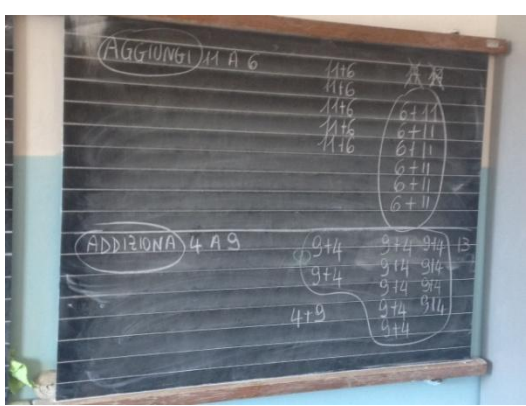 AGGIUNGI 11 A 6
11+6
11+6
11+6
11+6
11+6
6+11
6+11
6+11
6+11
6+11
6+11
ADDIZIONA 4 A 9
9+4 9+4 9+4 13
9+4 9+4 9+4
9+4 9+4
4+9 9+4 9+4
9+4